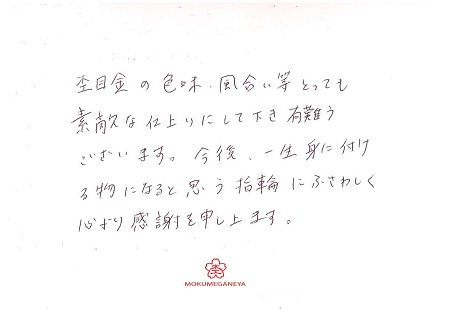 杢目金の色味、風合い等とっても
素敵な仕上りにして下さ有難う
ございます。今後、一生身に付け
る物になると思う指輪にふさわしく
心より感謝を申し上ます。
MOKUMEGANEYA